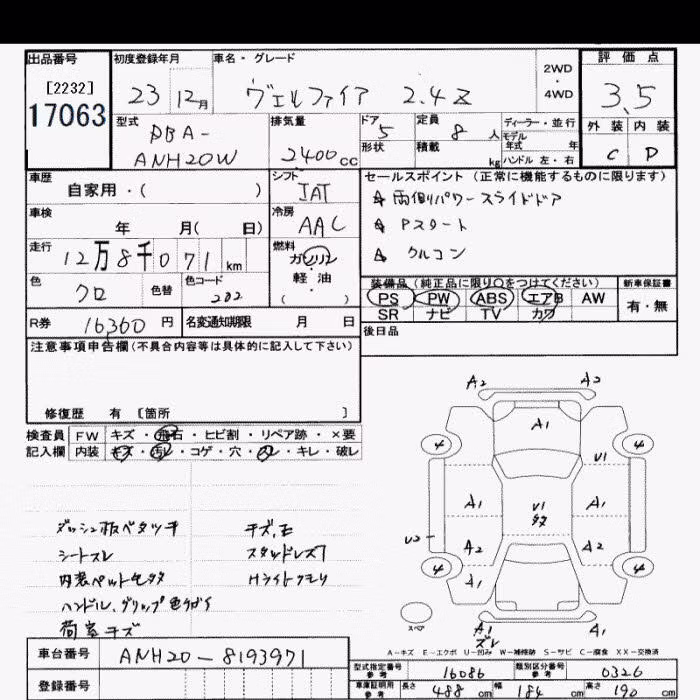 出品番号 初度登録年月 車名・グレード 評価点
[2232] 2WD
17063 23 12月 ヴェルファイア 2.4Z ・ 4WD 3.5
型式 排気量 ドア 定員 ディーラー・並行 外装 内装
DBA- 5 8人 モデル年式 年
ANH20W 2400cc 形状 積載 kg ハンドル 左・右 C D
車歴 シフト セールスポイント(正常に機能するものに限ります)
自家用・( ) IAT ☆両側パワースライドドア
車検 冷房 ☆Pスタート
年 月( 日) AAC ☆クルコン
走行 燃料
12万8千071km ガソリン
色 色替 色コード 軽・油 装備品(純正品に限り○をつけてください) 新車保証書
クロ 202 ( ・ ) PS PW ABS エアB AW 有・無
SR ナビ TV カワ
R券 16360円 名変通知期限 月 日 後日品
注意事項申告欄(不具合内容等は具体的に記入して下さい)
修復歴 有 [箇所 ]
検査員 FW キズ・飛石・ヒビ割・リペア跡・×要
記入欄 内装 キズ・汚レ・コゲ・穴・スレ・キレ・破レ
A2 A2
A1
4 4
U1
A1 U1 A1
U2 A2 A2
4 A1 4
スペア A1 A1
ズレ
シートスレ スタッドレス
ハンドル、グリップ色ガイ Hライトクモリ
荷室キズ
A―キズ E―エクボ U―凹み W―補修跡 S―サビ C―腐食 XX―交換済
車台番号 ANH20-8193971
型式指定番号 参考 16086 類別区分番号 参考 0326
登録番号
車庫証明用 参考 長さ 488cm 幅 184cm 高さ 190cm